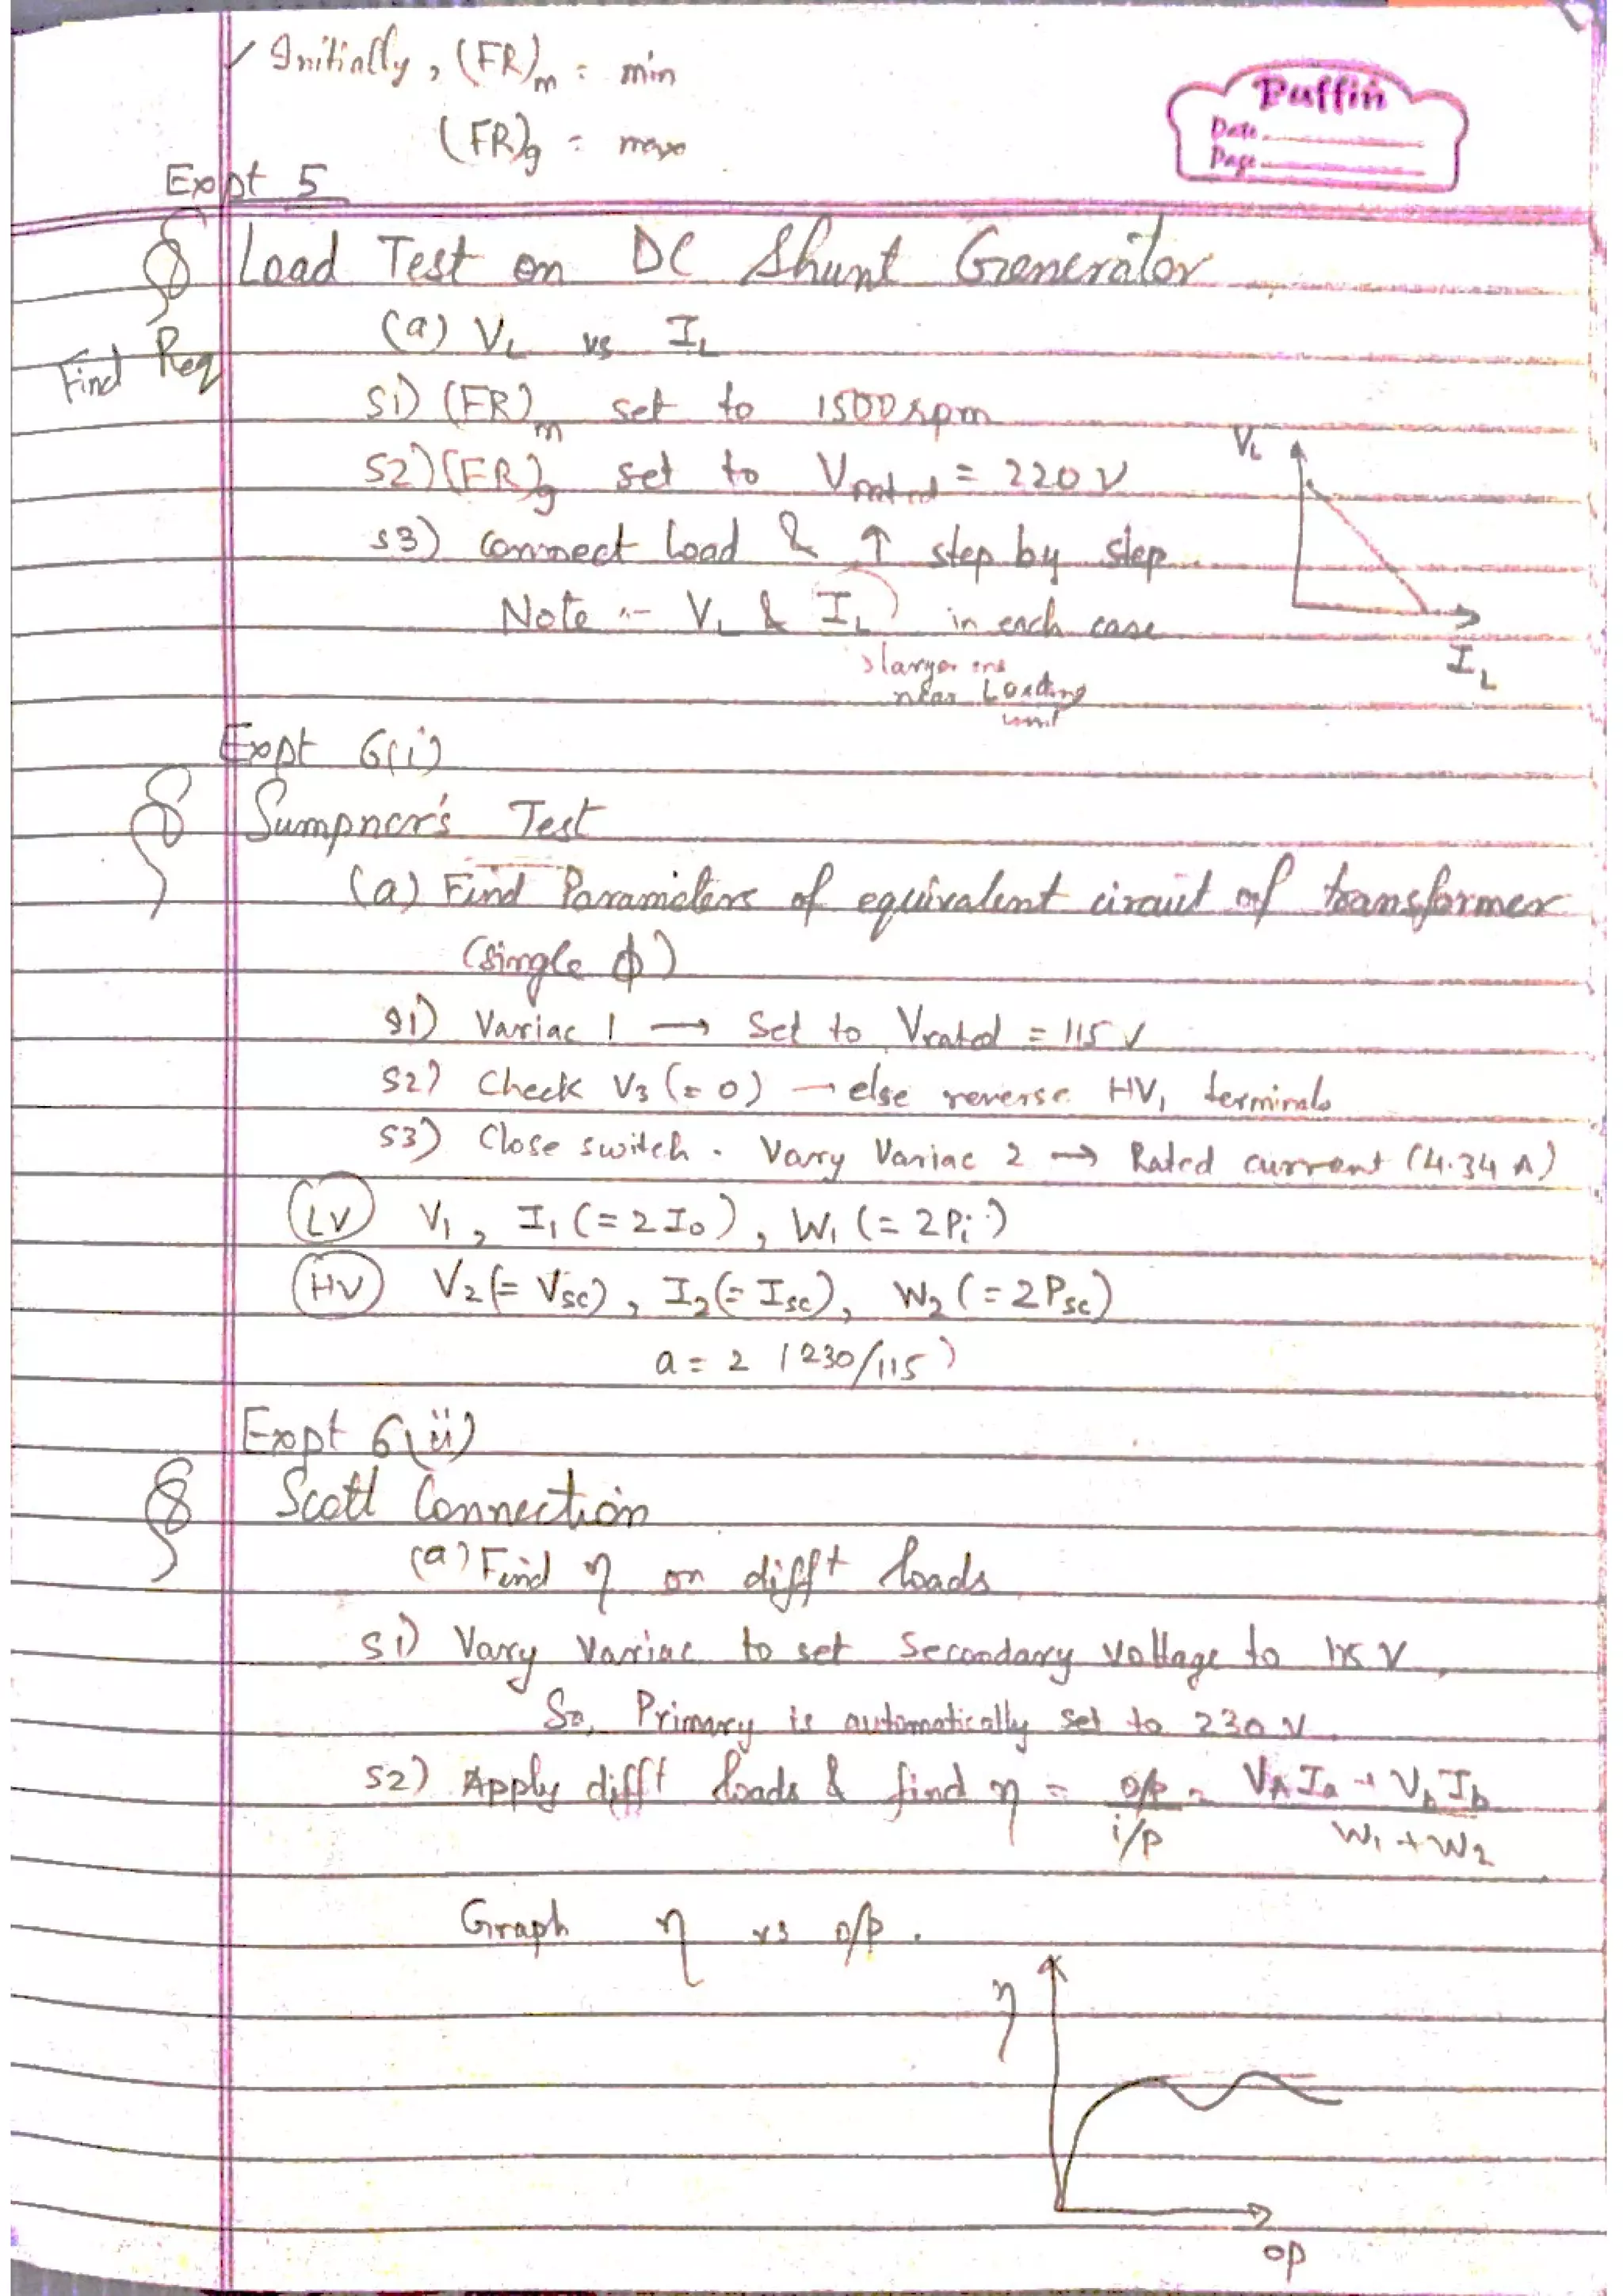 ✓ Initially, (FR)m = min
(FR)g = max
Puffin
Date
Page
Expt 5
Load Test on DC Shunt Generator
Find Req
(a) VL vs IL
S1) (FR)m set to 1500 rpm
S2) (FR)g set to Vrated = 220 V
S3) connect load & ↑ step by step.
Note :- VL & IL in each case
→ larger one
near Loading
unit
VL
IL
Expt 6(i)
Sumpner's Test
(a) Find Parameters of equivalent circuit of transformer
(single ϕ)
S1) Variac 1 → Set to Vrated = 115 V
S2) Check V3 (= 0) → else reverse HV1 terminals
S3) Close switch. Vary Variac 2 → Rated current (4.34 A)
(LV) V1, I1 (= 2I0), W1 (= 2Pi)
(HV) V2 (= Vsc), I2 (= Isc), W2 (= 2Psc)
a = 2 (230/115)
Expt 6(ii)
Scott Connection
(a) Find η on difft loads
S1) Vary Variac to set Secondary voltage to 115 V,
So, Primary is automatically set to 230 V.
S2) Apply difft loads & find η = o/p / i/p = VA Ia + Vb Ib / W1 + W2
Graph η vs o/p.
η
op